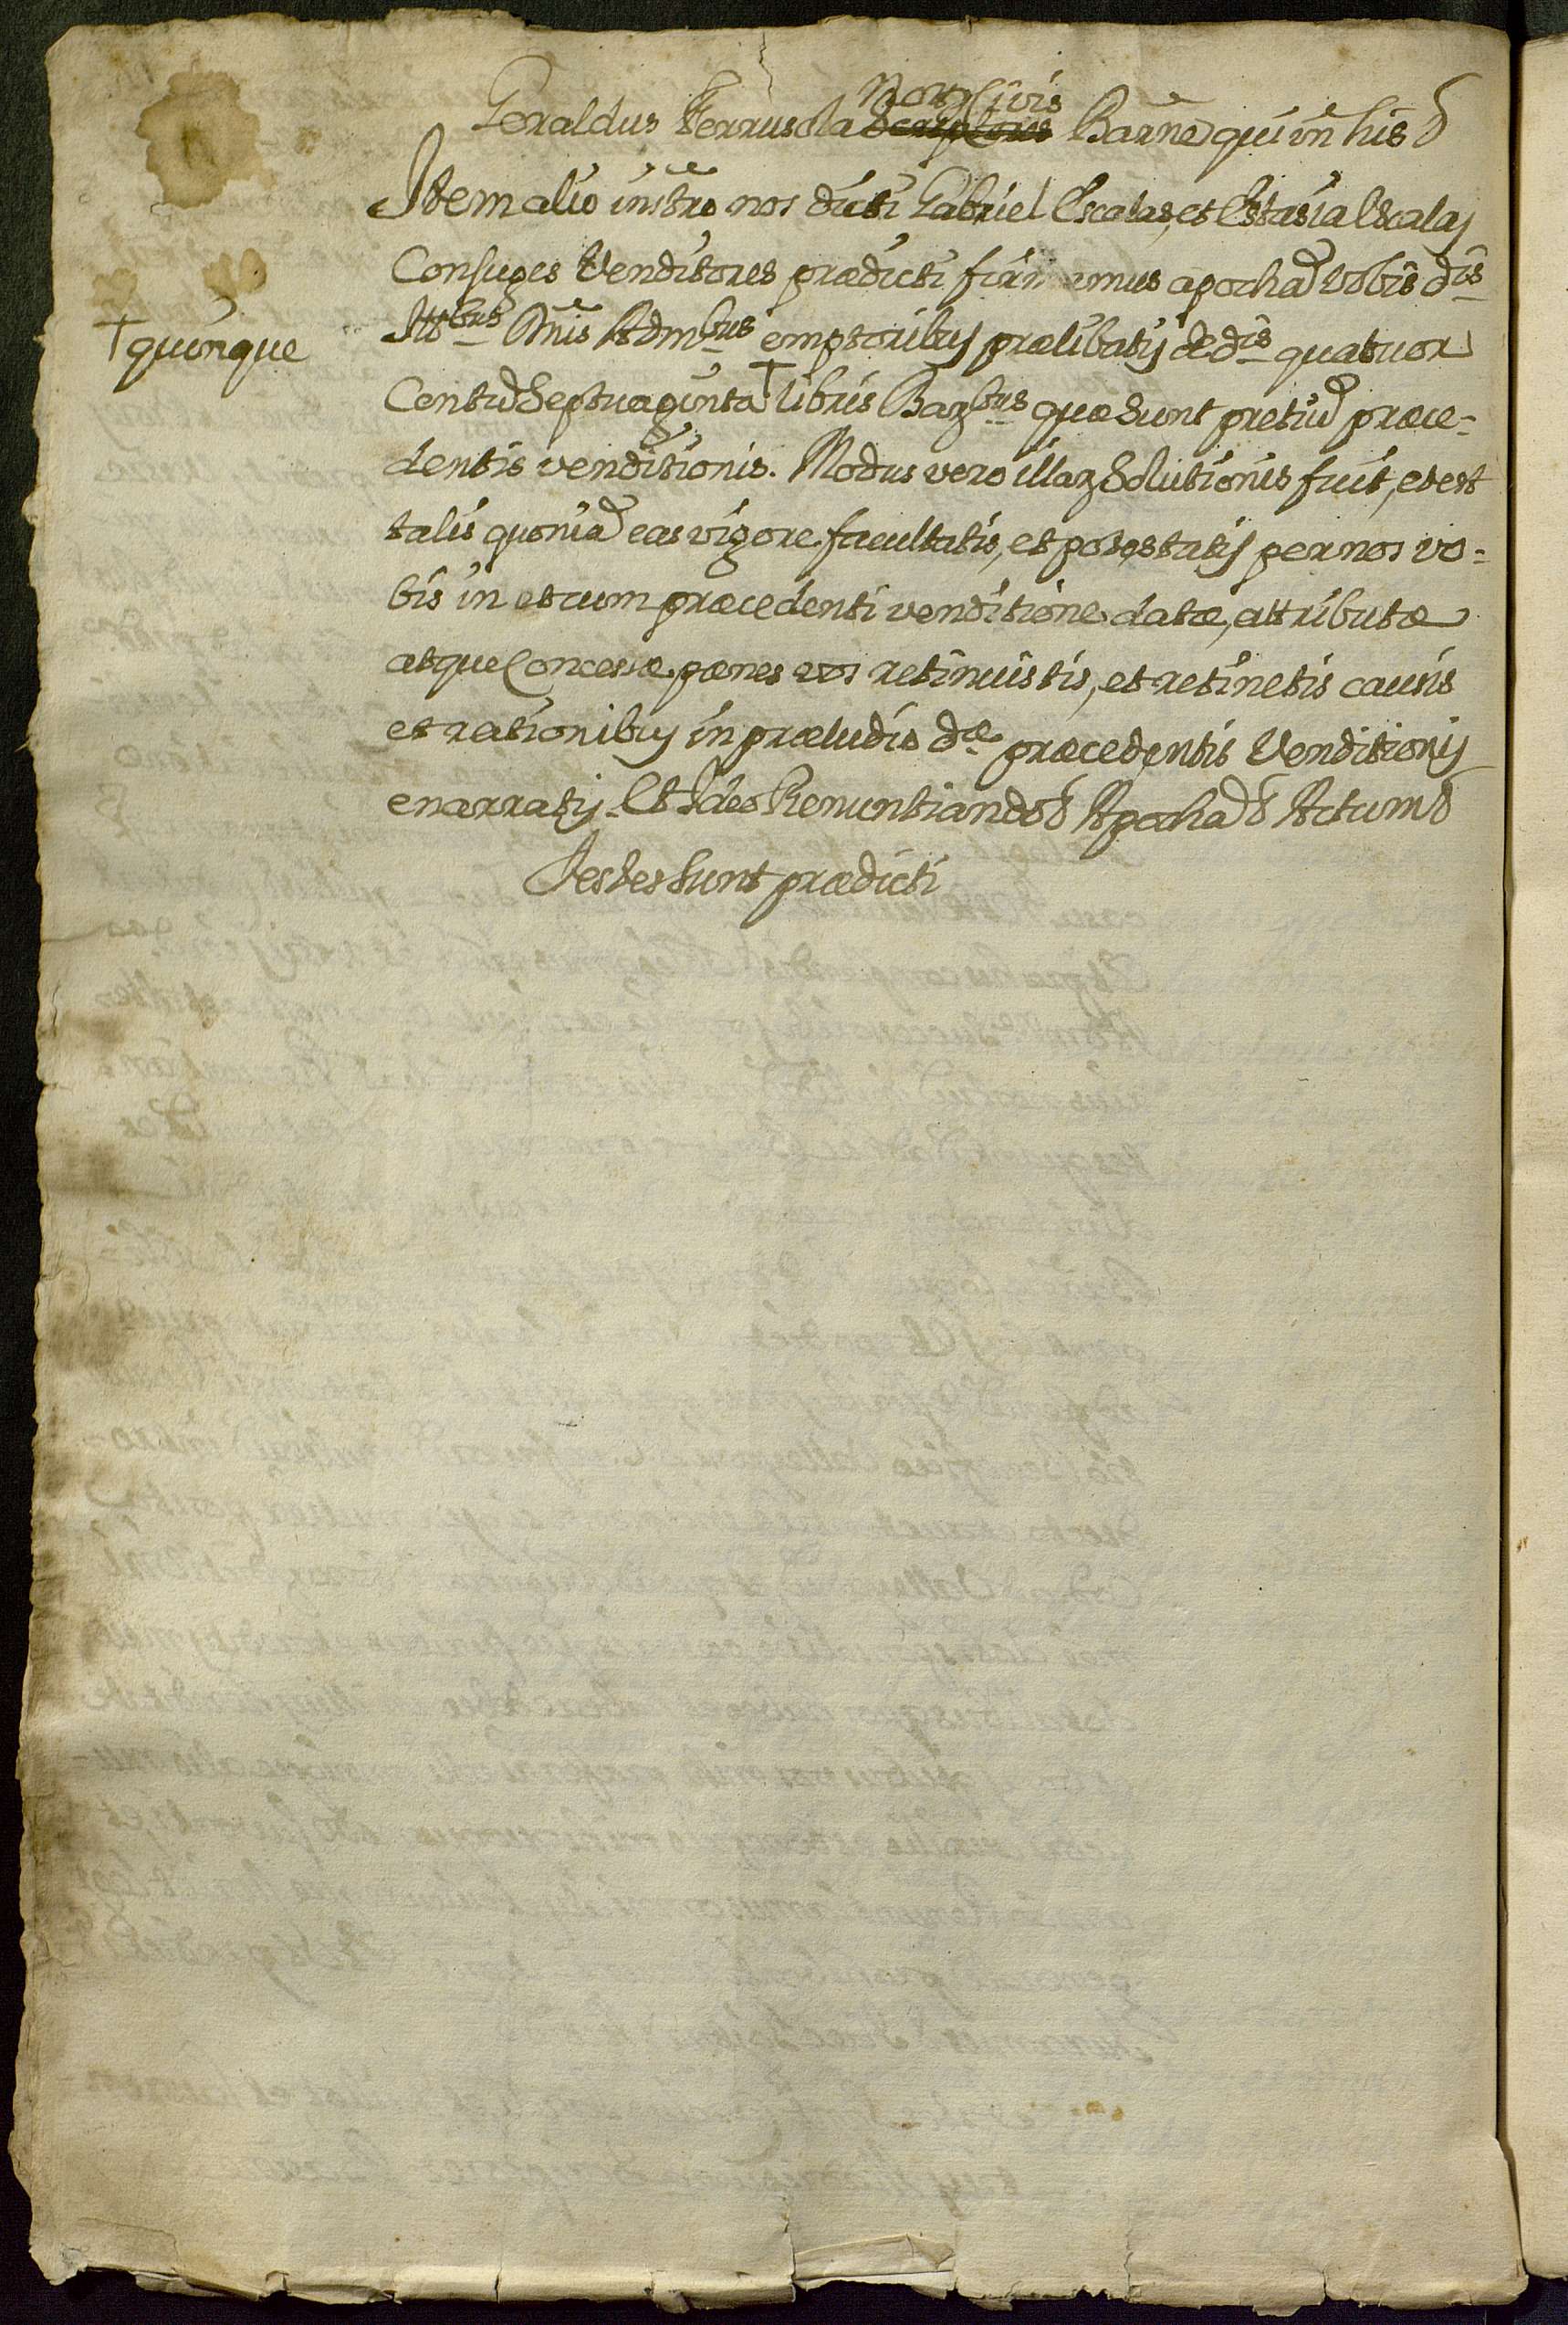 Not. Civis
Geraldus Ferrusola Scriptores Barñe qui in his &
Item alio instro nos dicti Gabriel Escalas, et Estasia Escalas
Conjuges Venditores prædicti firmamus apocham vobis dis
Illbus Dnis Admbus emptoribus prælibatis de dis quatuor
† quinque
Centum Septuaginta † libris Barbus quæ sunt pretium præce-
dentis venditionis. Modus vero illar. Solutionis fuit, et est
talis quoniam eas vigore facultatis, et potestatis per nos vo-
bis in et cum præcedenti venditione datæ, attributæ
atque Concessæ pænes vos retinuistis, et retinetis causis
et rationibus in præludio dæ præcedentis Venditionis
enarratis. Et Ideo Renuntiando & Apocham & Actum &
Testes Sunt prædicti